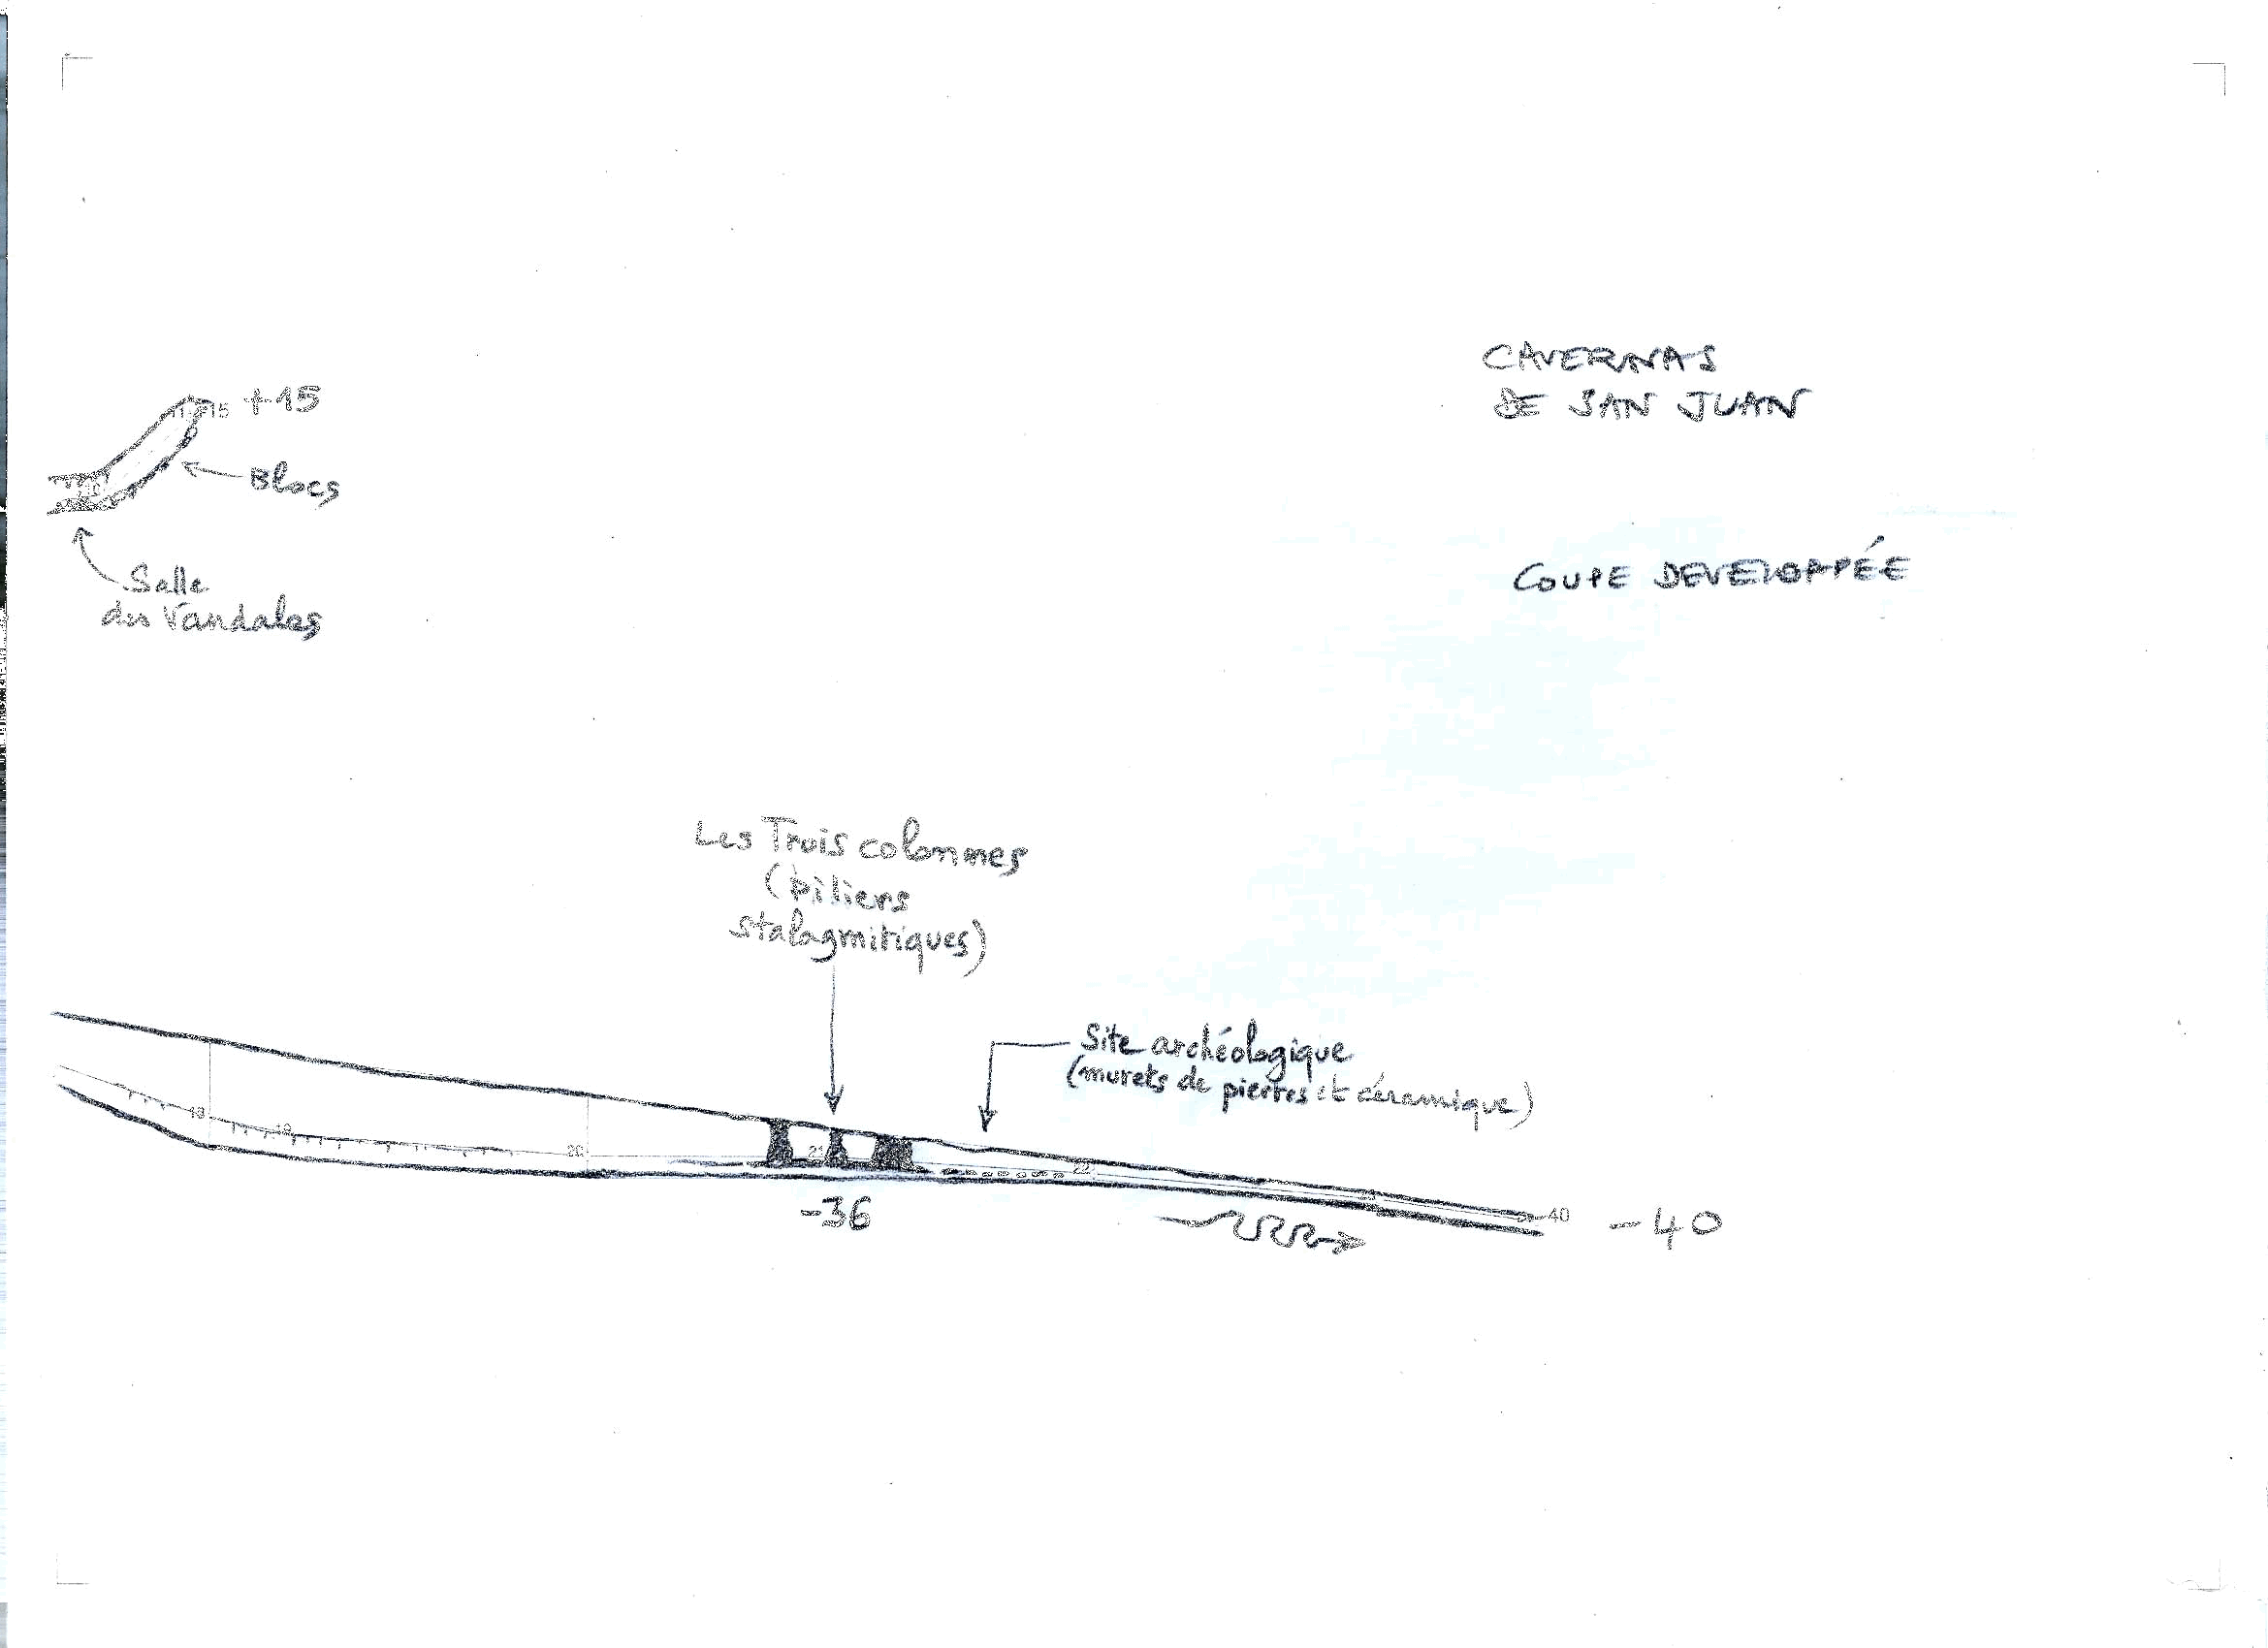 CAVERNAS
DE SAN JUAN
COUPE DEVELOPPÉE
15 +15
Blocs
Salle
des Vandales
Les Trois colonnes
(piliers
stalagmitiques)
Site archéologique
(murets de pierres et céramique)
18
19
20
21
22
23
-36
-40
-40